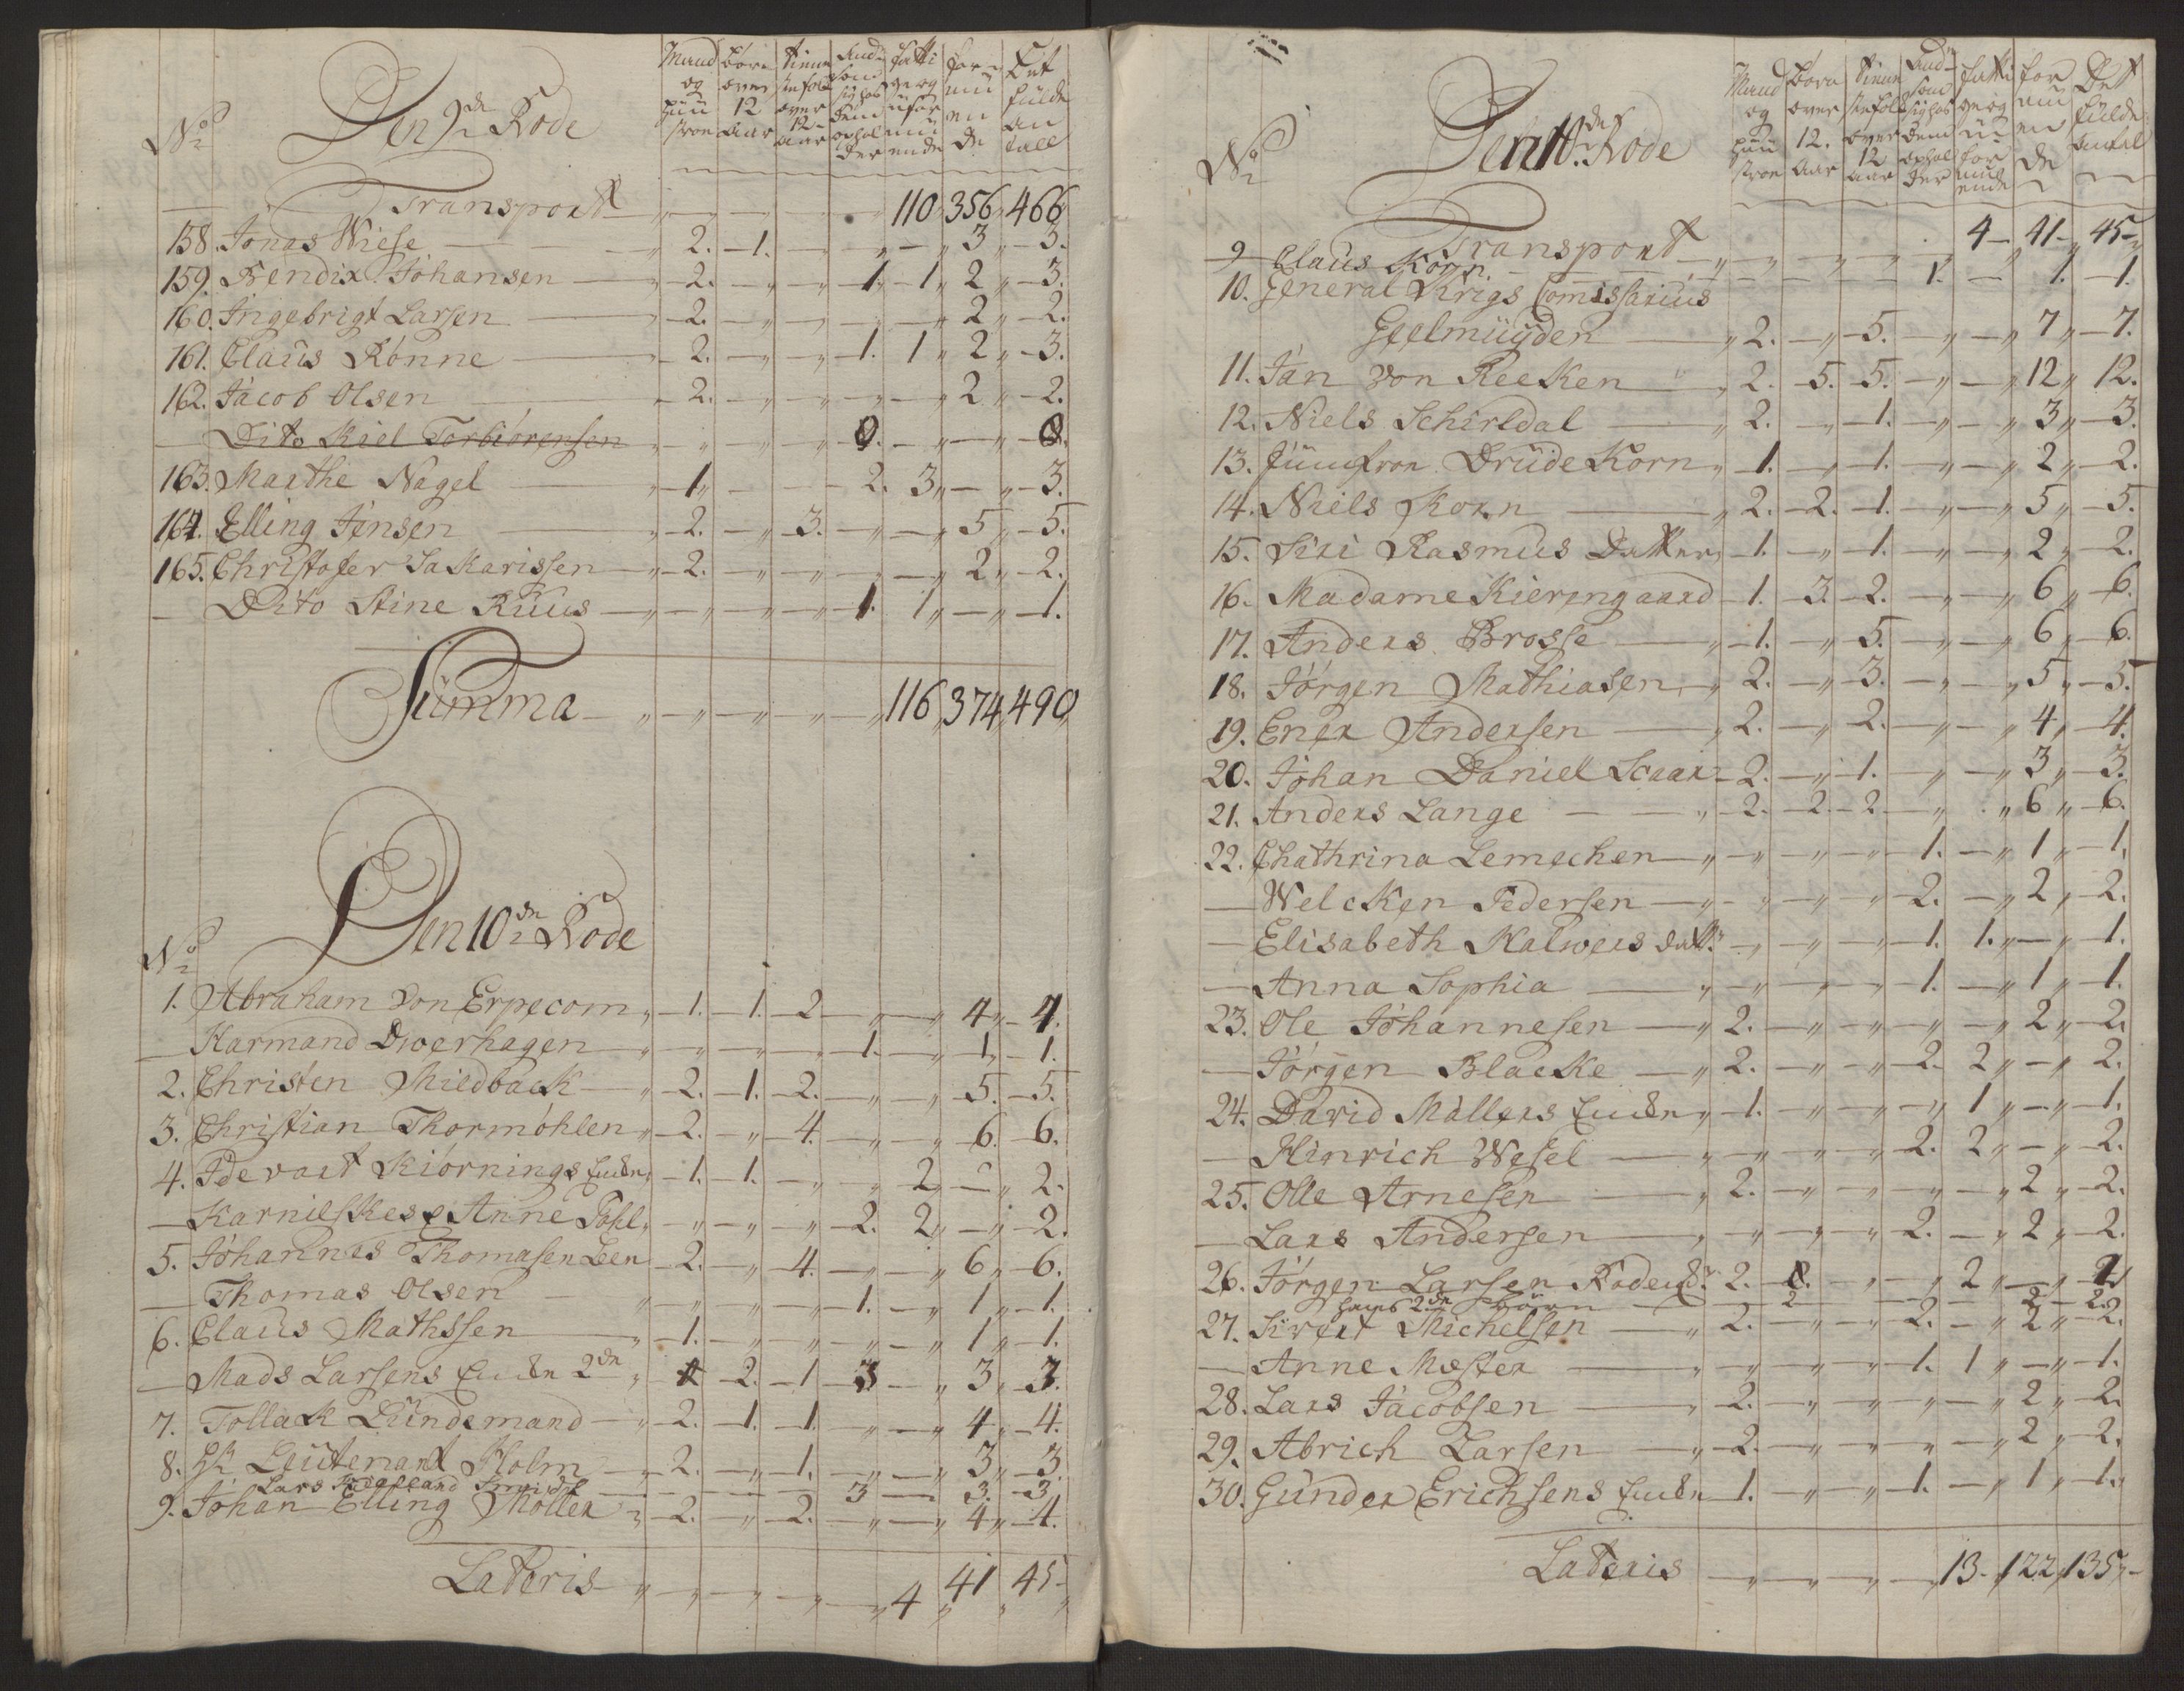 No
Den 9de Rode
Mand og Huustroe
Børn over 12 Aar
Tienniste folk over 12 Aar
Andre som sig hos dem opholder
Fattige og uformuende
formuende
Det fulde antall
Transport 110 356 466
158. Jonas Wiese 2. 1. 3 3.
159. Bendix Johansen 2. 1. 1 2 3.
160. Ingebrigt Larsen 2. 2 2.
161. Claus Rønne 2. 1. 1 2 3.
162. Jacob Olsen 2. 2 2.
Dito Kiel Torbiørensen 0. 0.
163. Marthe Nagel 1 2. 3 3.
164. Elling Jensen 2. 3. 5 5.
165. Christofer Sakarissen 2. 2 2.
Dito Stine Kuus 1. 1 1.
Summa 116 374 490
No
Den 10de Rode
1. Abraham Von Erpecom 1. 1. 2 4 4.
Harmand Dwerhagen 1. 1 1.
2. Christen Miedback 2. 1. 2. 5. 5.
3. Christian Thormøhlen 2. 4. 6. 6.
4. Pde vart Kiørnings Encke 1. 1. 2 2.
Karnilskes e Anne Pohl 2. 2 2.
5. Johannes Thomasen Leen 2. 4. 6 6.
Thomas Olsen 1. 1 1.
6. Claus Mathssen 1. 1 1.
Mads Larsens Encke 2de 2. 1 3 3 3.
7. Tollack Lündemand 2. 1. 1. 4 4.
8. Hr Leutenant Holm 2. 1. 3 3.
Lars Smid 3 3. 3.
9. Johan Elling Møller 2. 2. 4 4.
Lateris 4 41 45
No
Den 10de Rode
Mand og Huustroe
Børn over 12. Aar
Tienniste folk over 12 Aar
Andre som sig hos dem opholder
Fattige og uformuende
formuende
Det fulde antal
Transport 4 41 45
9 Claus Korn. 1. 1. 1.
10. General Krigs Comissarius
Geelmuyden 2. 5. 7 7.
11. Jan Von Reeken 2. 5. 5. 12 12.
12. Niels Schirldal 2. 1. 3 3.
13. Jümfroe Drüde Korn 1. 1. 2 2.
14. Niels Korn 2. 2. 1. 5 5.
15. Siri Rasmus Datter 1. 1. 2 2.
16. Madame Kierengaard 1. 3. 2. 6 6.
17. Anders Brosse 1. 5. 6 6.
18. Jørgen Mathiasen 2. 3. 5 5.
19. Ener Andersen 2. 2. 4 4.
20. Johan Daniel Scaar 2. 1. 3 3.
21. Anders Lange 2. 2. 2. 6 6.
22. Chathrina Lemechen 1. 1 1.
Welcken Pedersen 2. 2 2.
Elisabeth Kalweis datt: 1. 1. 1.
Anna Sophia 1. 1 1.
23. Ole Johannesen 2. 2 2.
Jørgen Blacke 2. 2. 2 2.
24. David Møllers Encke 1. 1 1.
Hinrich Wesel 2. 2 2.
25. Olle Arnesen 2. 2 2.
Lars Andersen 2. 2 2.
26. Jørgen Larsen 2. 2 2
hans 2de Børn 2 2 2.
27. Sivert Michelsen 2. 2. 2 2.
Anne Mester 1. 1 1.
28. Lars Jacobsen 2. 2 2.
29. Abrich Larsen 2. 2 2.
30. Gunder Erichsens Encke 1. 1. 1 1.
Lateris 13 122 135